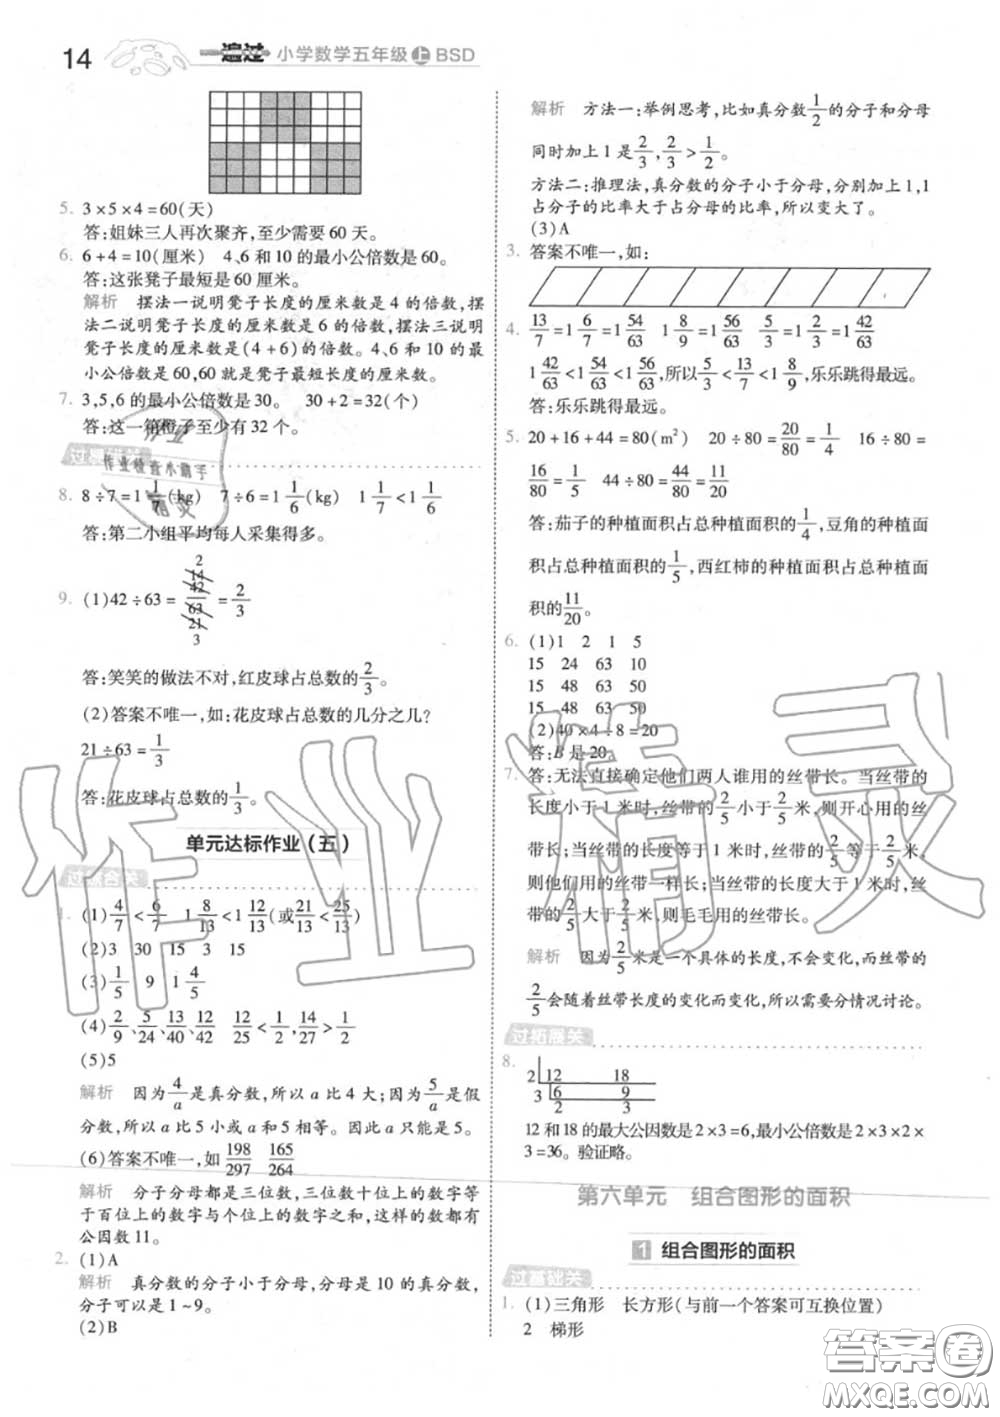 14 一遍过 小学数学五年级 上 BSD
5. 3×5×4=60(天)
答:姐妹三人再次聚齐,至少需要 60 天。
6. 6+4=10(厘米) 4、6 和 10 的最小公倍数是 60。
答:这张凳子最短是 60 厘米。
解析 摆法一说明凳子长度的厘米数是 4 的倍数,摆
法二说明凳子长度的厘米数是 6 的倍数,摆法三说明
凳子长度的厘米数是(4+6)的倍数。4、6 和 10 的最
小公倍数是 60,60 就是凳子最短长度的厘米数。
7. 3,5,6 的最小公倍数是 30。 30+2=32(个)
答:这一箱橙子至少有 32 个。
过基础关
8. 8÷7=1 1/7(kg) 7÷6=1 1/6(kg) 1 1/7<1 1/6
答:第二小组平均每人采集得多。
9. (1)42÷63=42/63=2/3
答:笑笑的做法不对,红皮球占总数的2/3。
(2)答案不唯一,如:花皮球占总数的几分之几?
21÷63=1/3
答:花皮球占总数的1/3。
单元达标作业(五)
过综合关
1. (1)4/7<6/7 1 8/13<1 12/13(或21/13<25/13)
(2)3 30 15 3 15
(3)1/5 9 1 4/5
(4)2/9、5/24、13/40、12/42 12/25<1/2,14/27>1/2
(5)5
解析 因为4/a是真分数,所以 a 比 4 大;因为5/a是假
分数,所以 a 比 5 小或 a 和 5 相等。因此 a 只能是 5。
(6)答案不唯一,如198/297 165/264
解析 分子分母都是三位数,三位数十位上的数字等
于百位上的数字与个位上的数字之和,这样的数都有
公因数 11。
2. (1)A
解析 真分数的分子小于分母,分母是 10 的真分数,
分子可以是 1~9。
(2)B
解析 方法一:举例思考,比如真分数1/2的分子和分母
同时加上 1 是2/3,2/3>1/2。
方法二:推理法,真分数的分子小于分母,分别加上 1,1
占分子的比率大于占分母的比率,所以变大了。
(3)A
3. 答案不唯一,如:
4. 13/7=1 6/7=1 54/63 1 8/9=1 56/63 5/3=1 2/3=1 42/63
1 42/63<1 54/63<1 56/63,所以5/3<13/7<1 8/9,乐乐跳得最远。
答:乐乐跳得最远。
5. 20+16+44=80(m²) 20÷80=20/80=1/4 16÷80=
16/80=1/5 44÷80=44/80=11/20
答:茄子的种植面积占总种植面积的1/4,豆角的种植面
积占总种植面积的1/5,西红柿的种植面积占总种植面
积的11/20。
6. (1)1 2 1 5
15 24 63 10
15 48 63 50
15 48 63 50
(2)40×4÷8=20
答:B 是 20。
7. 答:无法直接确定他们两人谁用的丝带长。当丝带的
长度小于 1 米时,丝带的2/5小于2/5米,则开心用的丝
带长;当丝带的长度等于 1 米时,丝带的2/5等于2/5米,
则他们用的丝带一样长;当丝带的长度大于 1 米时,丝
带的2/5大于2/5米,则毛毛用的丝带长。
解析 因为2/5米是一个具体的长度,不会变化,而丝带的
2/5会随着丝带长度的变化而变化,所以需要分情况讨论。
过拓展关
8. 2 12 18
3 6 9
2 3
12 和 18 的最大公因数是 2×3=6,最小公倍数是 2×3×2×
3=36。验证略。
第六单元 组合图形的面积
1 组合图形的面积
过基础关
1. (1)三角形 长方形(与前一个答案可互换位置)
2 梯形
作业精灵
作业
作业检查小助手
精灵
答案圈
MXQE.COM